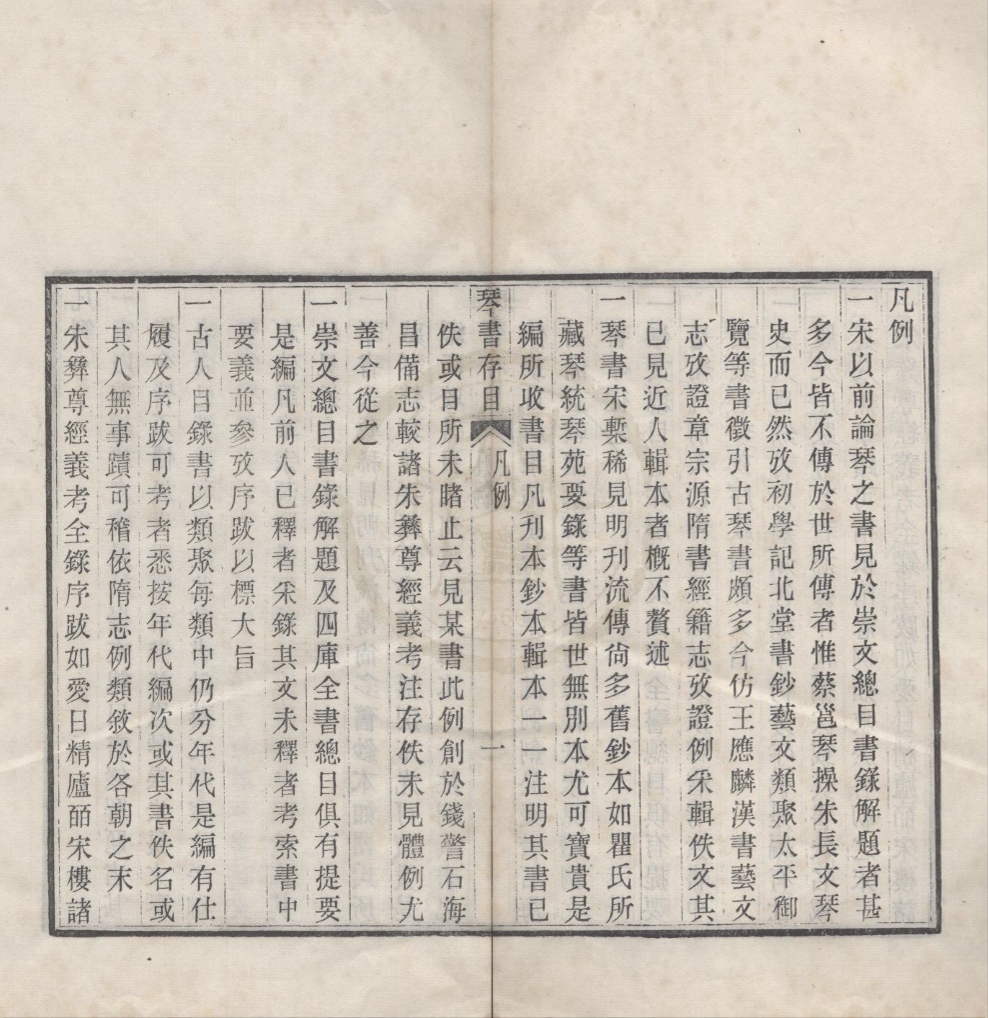 凡例
一宋以前論琴之書見於崇文總目書錄解題者甚
多今皆不傳於世所傳者惟蔡邕琴操朱長文琴
史而已然攷初學記北堂書鈔藝文類聚太平御
覽等書徵引古琴書頗多今仿王應麟漢書藝文
志攷證章宗源隋書經籍志攷證例采輯佚文其
已見近人輯本者槪不贅述
一琴書宋槧稀見明刊流傳尙多舊鈔本如瞿氏所
藏琴統琴苑要錄等書皆世無別本尤可寶貴是
編所收書目凡刊本鈔本輯本一一注明其書已
琴書存目 凡例 一
佚或目所未睹止云見某書此例創於錢警石海
昌備志較諸朱彝尊經義考注存佚未見體例尤
善今從之
一崇文總目書錄解題及四庫全書總目俱有提要
是編凡前人已釋者采錄其文未釋者考索書中
要義並參攷序跋以標大旨
一古人目錄書以類聚每類中仍分年代是編有仕
履及序跋可考者悉按年代編次或其書佚名或
其人無事蹟可稽依隋志例類敘於各朝之末
一朱彝尊經義考全錄序跋如愛日精廬皕宋樓諸